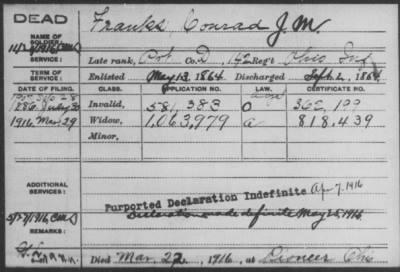 DEAD
NAME OF SOLDIER: Franks, Conrad J. M.
SERVICE: Late rank, Co. D, 142 Reg't Ohio Inf
TERM OF SERVICE: Enlisted May 13, 1864 Discharged Sept. 2, 1864
DATE OF FILING. CLASS. APPLICATION NO. LAW. CERTIFICATE NO.
1886 July 30 Invalid, 581,383 362,199
1916 Mar. 29 Widow, 1,063,979 a 818,439
Minor,
ADDITIONAL SERVICES:
Purported Declaration Indefinite Apr 7, 1916
Declaration made definite May 25, 1916
REMARKS:
Died Mar. 22, 1916, at Pioneer Ohio